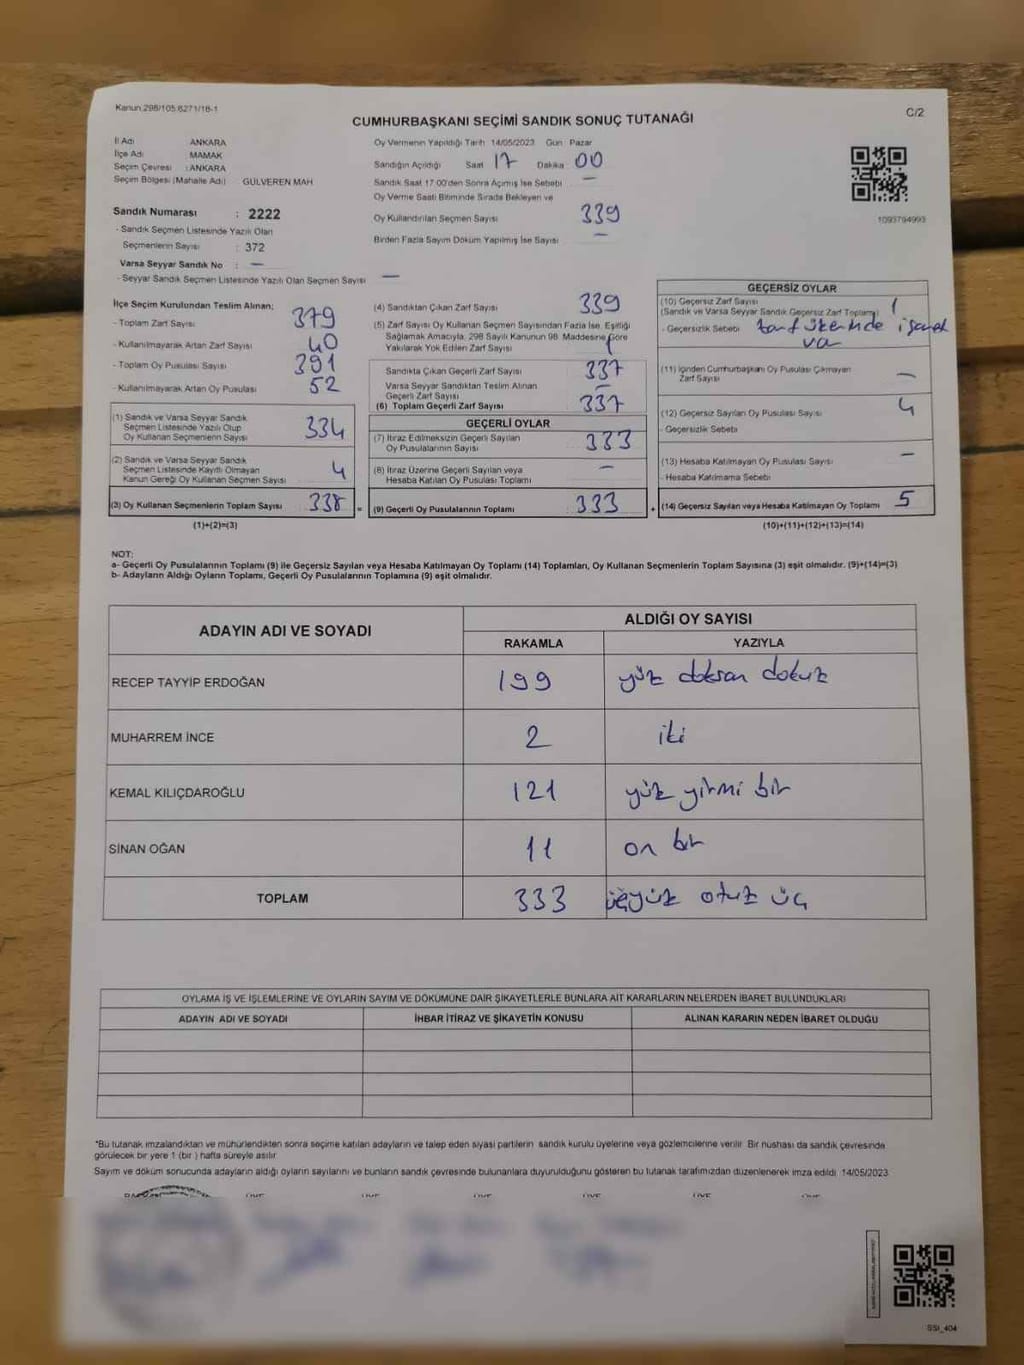 Kanun.298/105.6271/16-1
C/2
CUMHURBAŞKANI SEÇİMİ SANDIK SONUÇ TUTANAĞI
İl Adı ANKARA
İlçe Adı MAMAK
Seçim Çevresi : ANKARA
Seçim Bölgesi (Mahalle Adı) GÜLVEREN MAH
Sandık Numarası : 2222
- Sandık Seçmen Listesinde Yazılı Olan
Seçmenlerin Sayısı : 372
Varsa Seyyar Sandık No : —
- Seyyar Sandık Seçmen Listesinde Yazılı Olan Seçmen Sayısı —
Oy Vermenin Yapıldığı Tarih 14/05/2023 Gün Pazar
Sandığın Açıldığı Saat 17 Dakika 00
Sandık Saat 17.00'den Sonra Açılmış İse Sebebi —
Oy Verme Saati Bitiminde Sırada Bekleyen ve
Oy Kullandırılan Seçmen Sayısı 339
Birden Fazla Sayım Döküm Yapılmış İse Sayısı —
1093794993
İlçe Seçim Kurulundan Teslim Alınan;
- Toplam Zarf Sayısı 379
- Kullanılmayarak Artan Zarf Sayısı 40
- Toplam Oy Pusulası Sayısı 391
- Kullanılmayarak Artan Oy Pusulası 52
(1) Sandık ve Varsa Seyyar Sandık
Seçmen Listesinde Yazılı Olup
Oy Kullanan Seçmenlerin Sayısı 334
(2) Sandık ve Varsa Seyyar Sandık
Seçmen Listesinde Kayıtlı Olmayan
Kanun Gereği Oy Kullanan Seçmen Sayısı 4
(3) Oy Kullanan Seçmenlerin Toplam Sayısı 338 =
(1)+(2)=(3)
(4) Sandıktan Çıkan Zarf Sayısı 339
(5) Zarf Sayısı Oy Kullanan Seçmen Sayısından Fazla İse, Eşitliği
Sağlamak Amacıyla, 298 Sayılı Kanunun 98. Maddesine Göre
Yakılarak Yok Edilen Zarf Sayısı 1
Sandıkta Çıkan Geçerli Zarf Sayısı 337
Varsa Seyyar Sandıktan Teslim Alınan
Geçerli Zarf Sayısı —
(6) Toplam Geçerli Zarf Sayısı 337
GEÇERLİ OYLAR
(7) İtiraz Edilmeksizin Geçerli Sayılan
Oy Pusulalarının Sayısı 333
(8) İtiraz Üzerine Geçerli Sayılan veya
Hesaba Katılan Oy Pusulası Toplamı —
(9) Geçerli Oy Pusulalarının Toplamı 333 +
GEÇERSİZ OYLAR
(10) Geçersiz Zarf Sayısı
(Sandık ve Varsa Seyyar Sandık Geçersiz Zarf Toplamı) 1
- Geçersizlik Sebebi zarf üzerinde işaret
va
(11) İçinden Cumhurbaşkanı Oy Pusulası Çıkmayan
Zarf Sayısı —
(12) Geçersiz Sayılan Oy Pusulası Sayısı 4
- Geçersizlik Sebebi
(13) Hesaba Katılmayan Oy Pusulası Sayısı —
- Hesaba Katılmama Sebebi
(14) Geçersiz Sayılan veya Hesaba Katılmayan Oy Toplamı 5
(10)+(11)+(12)+(13)=(14)
NOT:
a- Geçerli Oy Pusulaları Toplamı (9) ile Geçersiz Sayılan veya Hesaba Katılmayan Oy Toplamı (14) Toplamları, Oy Kullanan Seçmenlerin Toplam Sayısına (3) eşit olmalıdır. (9)+(14)=(3)
b- Adayların Aldığı Oyların Toplamı, Geçerli Oy Pusulalarının Toplamına (9) eşit olmalıdır.
ADAYIN ADI VE SOYADI
ALDIĞI OY SAYISI
RAKAMLA YAZIYLA
RECEP TAYYİP ERDOĞAN 199 yüz doksan dokuz
MUHARREM İNCE 2 iki
KEMAL KILIÇDAROĞLU 121 yüz yirmi bir
SİNAN OĞAN 11 on bir
TOPLAM 333 üçyüz otuz üç
OYLAMA İŞ VE İŞLEMLERİNE VE OYLARIN SAYIM VE DÖKÜMÜNE DAİR ŞİKAYETLERLE BUNLARA AİT KARARLARIN NELERDEN İBARET BULUNDUKLARI
ADAYIN ADI VE SOYADI İHBAR İTİRAZ VE ŞİKAYETİN KONUSU ALINAN KARARIN NEDEN İBARET OLDUĞU
*Bu tutanak imzalandıktan ve mühürlendikten sonra seçime katılan adayların ve talep eden siyasi partilerin sandık kurulu üyelerine veya gözlemcilerine verilir. Bir nüshası da sandık çevresinde
görülecek bir yere 1 (bir) hafta süreyle asılır.
Sayım ve döküm sonucunda adayların aldığı oyların sayılarını ve bunların sandık çevresinde bulunanlara duyurulduğunu gösteren bu tutanak tarafımızdan düzenlenerek imza edildi. 14/05/2023
SSI_404